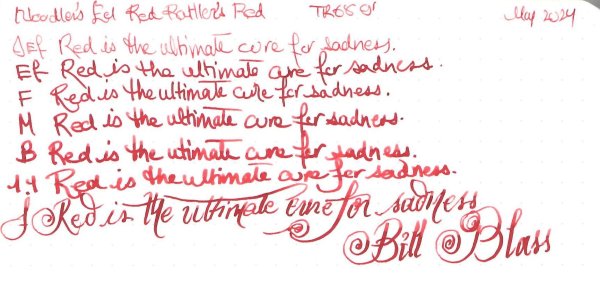 Noodler's Eel Red Rattler's Red TR68gr May 2024
Jef Red is the ultimate cure for sadness.
Ef Red is the ultimate cure for sadness.
F Red is the ultimate cure for sadness.
M Red is the ultimate cure for sadness.
B Red is the utimate cure for sadness.
1.1 Red is the ultimate cure for sadness.
J Red is the ultimate cure for sadness
Bill Blass